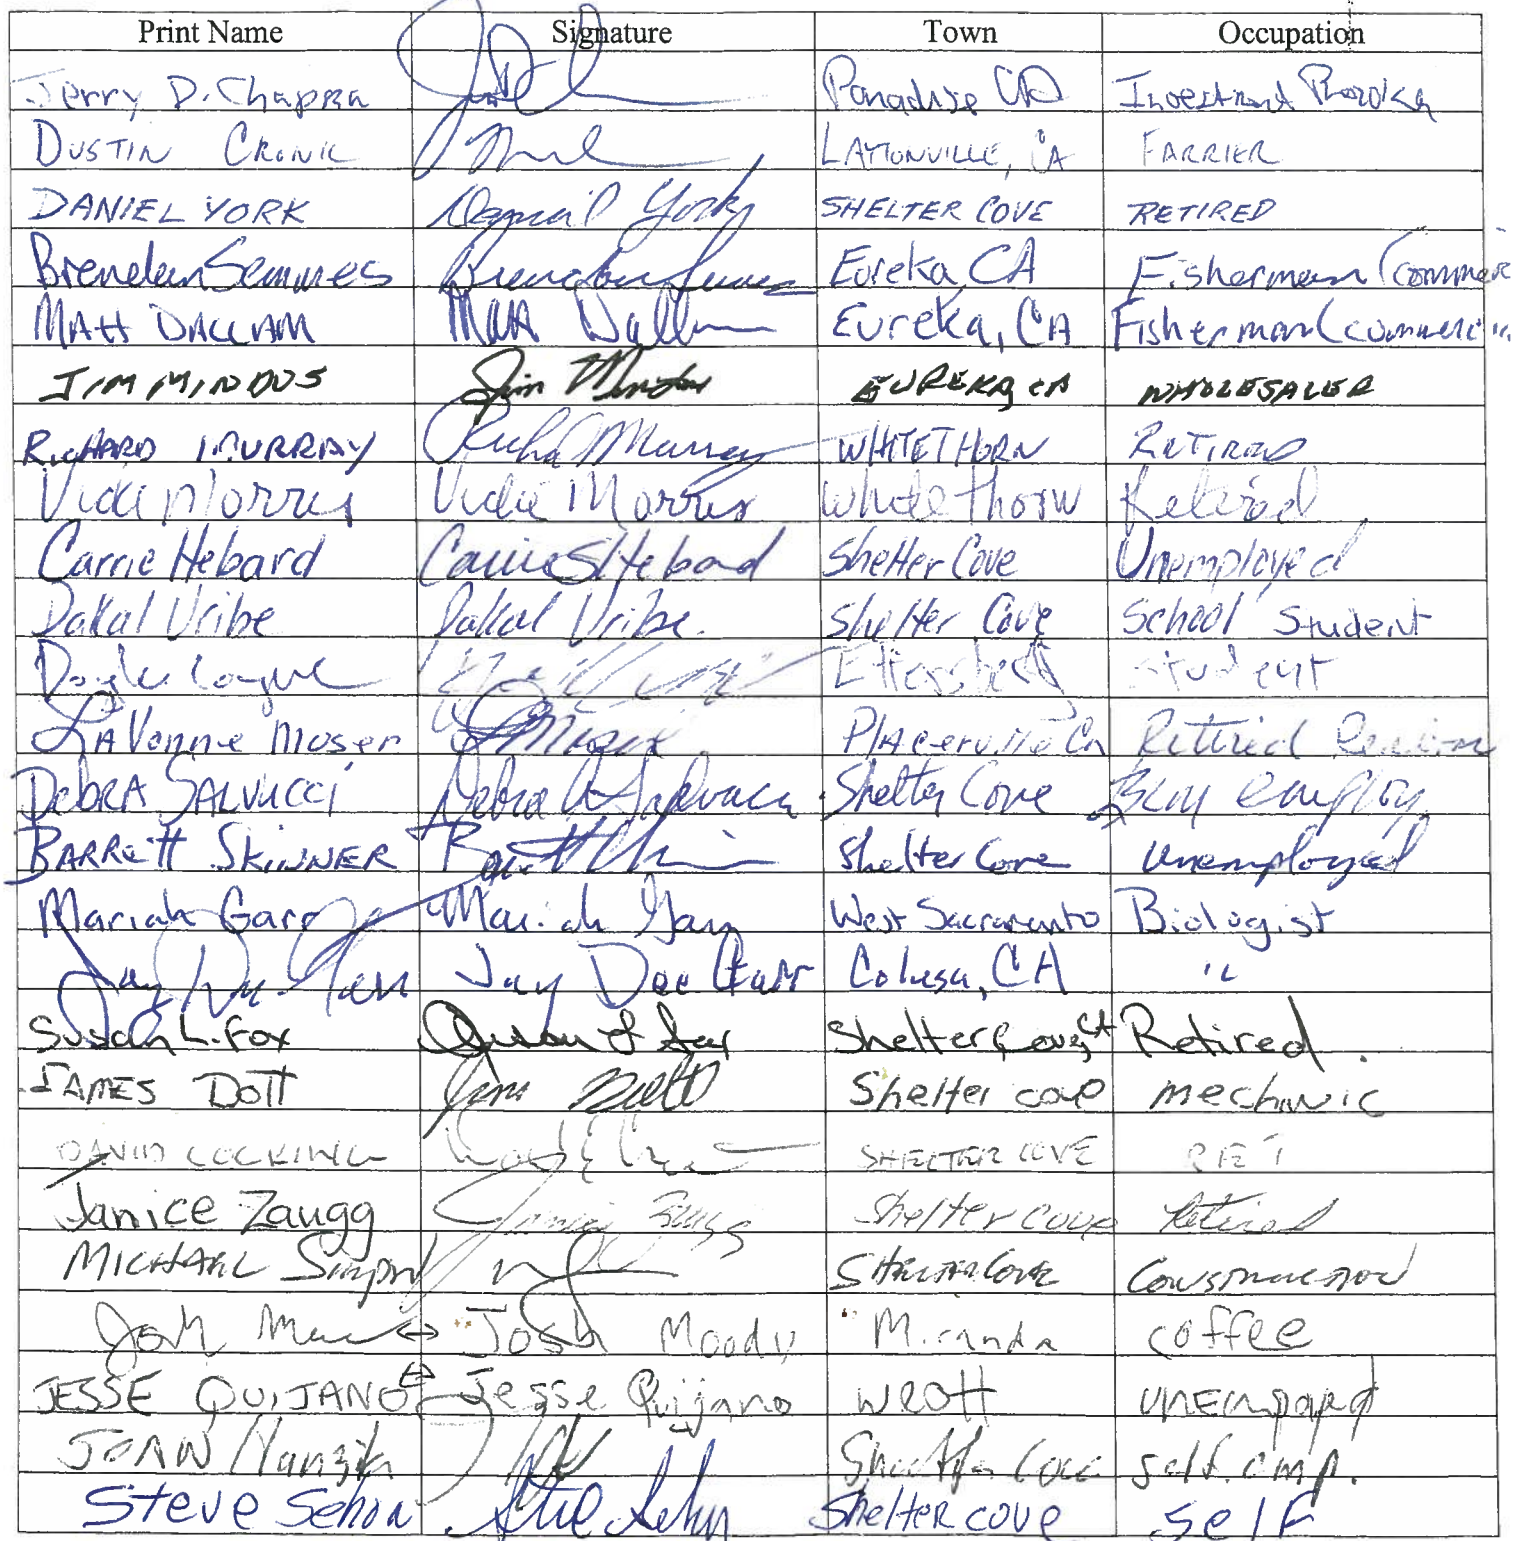 Print Name Signature Town Occupation
Jerry D. Chapra Paradise CA Investment
DUSTIN CRONIC LAYTONVILLE, CA FARRIER
DANIEL YORK Daniel York SHELTER COVE RETIRED
Brendan Semmes Brendan Semmes Eureka, CA Fisherman (commerc
MATT DALLAM Matt Dallam Eureka, CA Fisherman (commerci
JIM MINDUS Jim EUREKA, CA WHOLESALER
RICHARD MURRAY Richard Murray WHITETHORN RETIRED
Vicki Morris Vicki Morris Whitethorn Retired
Carrie Hebard Carrie S Hebard Shelter Cove Unemployed
Dakal Uribe Dakal Uribe. Shelter Cove School Student
Student
LaVonne Moser Placerville Ca Retired
DebRA SALVUCCI Debra Shelter Cove
BARRETT SKINNER Shelter Cove Unemployed
Mariah Gary Mariah West Sacramento Biologist
Jay Jay Dee Colusa, CA "
Susan L. Fox Susan L Fox Shelter Cove, CA Retired.
JAMES DOTT Jim Dott Shelter cove mechanic
DAVID COCKING SHELTER COVE RET
Janice Zaugg Janice Zaugg Shelter cove Retired
MICHAEL Simpson SHELTER COVE CONSTRUCTION
Josh ↔ Josh Moody Miranda coffee
JESSE QUIJANO ↔ Jesse Quijano WEOTT
JOHN Shelter Cove self. emp.
Steve Sehon Steve Shelter cove Self